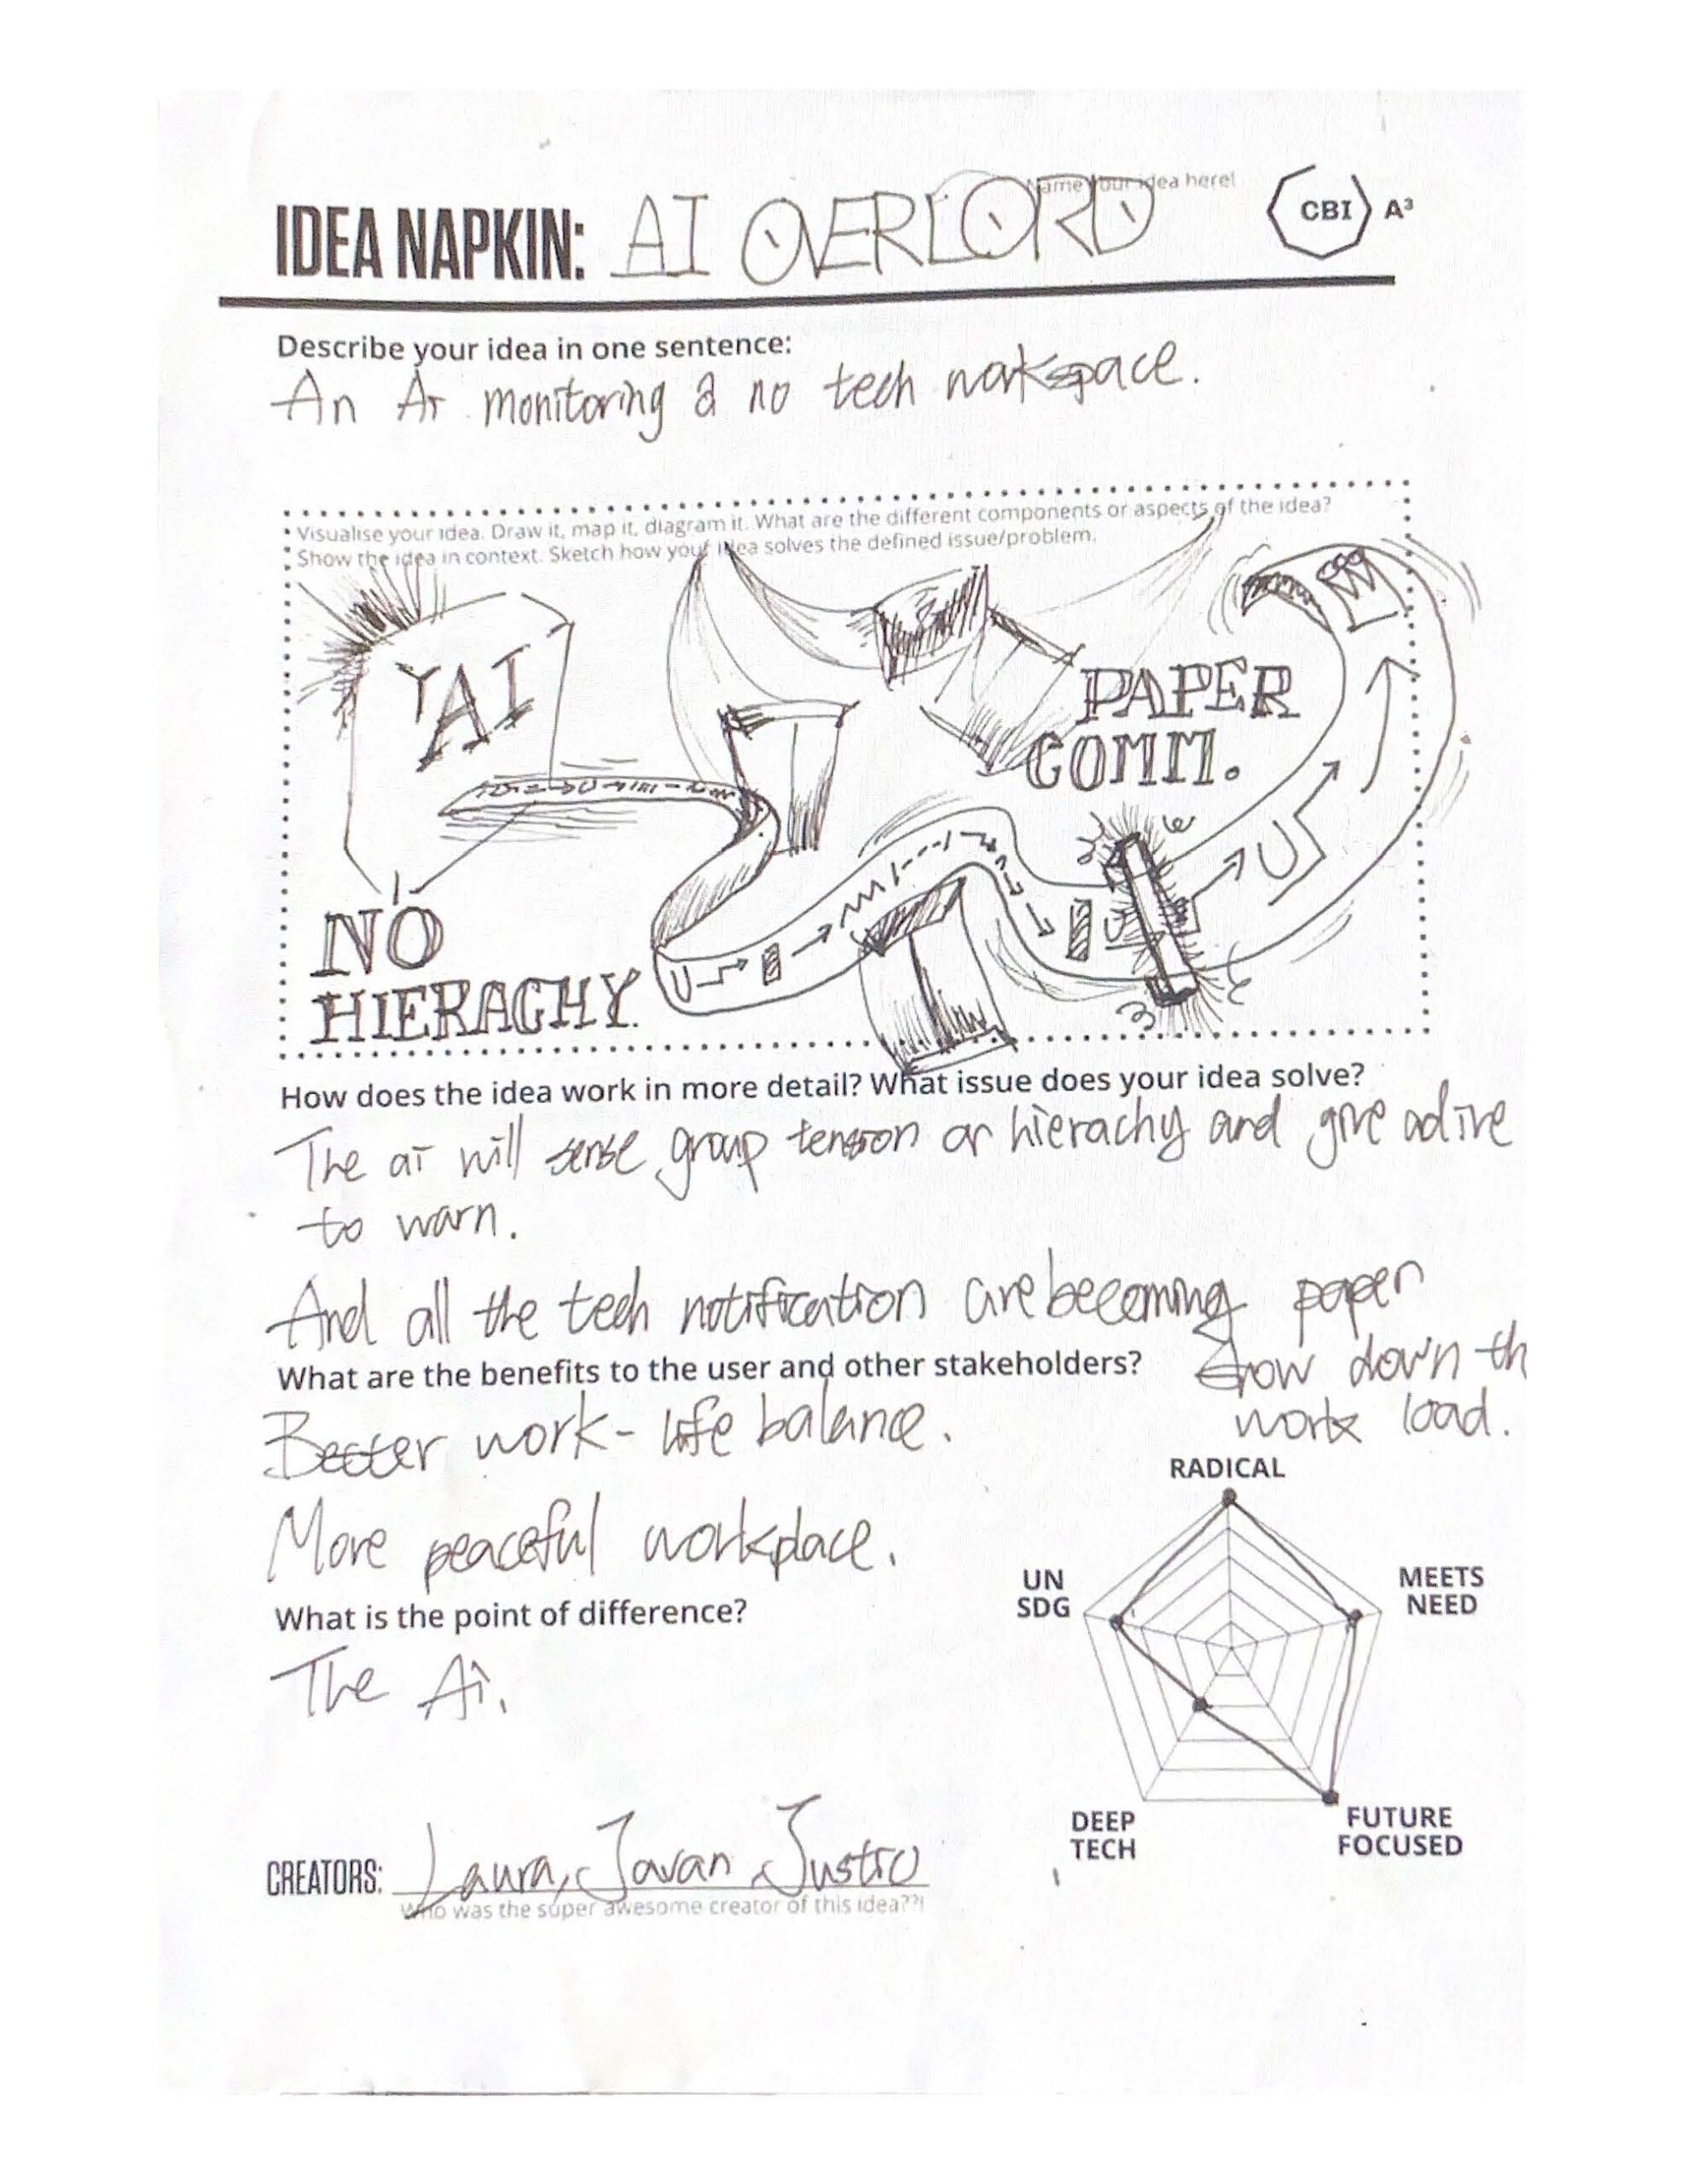 Name your idea here!
IDEA NAPKIN: AI OVERLORD
CBI A³
Describe your idea in one sentence:
An Ai monitoring a no tech workspace.
Visualise your idea. Draw it, map it, diagram it. What are the different components or aspects of the idea?
Show the idea in context. Sketch how your idea solves the defined issue/problem.
AI
PAPER
COMM.
NO
HIERACHY.
How does the idea work in more detail? What issue does your idea solve?
The ai will sense group tension or hierachy and give
to warn.
And all the tech notification are becoming paper
down th
work load.
What are the benefits to the user and other stakeholders?
Better work-life balance.
More peaceful workplace.
What is the point of difference?
The Ai.
RADICAL
MEETS
NEED
FUTURE
FOCUSED
DEEP
TECH
UN
SDG
CREATORS: Laura, Javan
Who was the super awesome creator of this idea??!